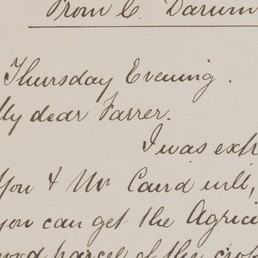 From C. Darwin
Thursday Evening.
My dear Farrer.
I was extr
You & Mr Caird will,
you can get the Agricu
good parcel of the crop